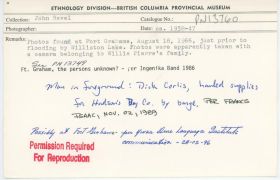 ETHNOLOGY DIVISION—BRITISH COLUMBIA PROVINCIAL MUSEUM
Collection: John Revel
Catalogue No.: PN13760
Photographer: Date: ca. 1938-47
Remarks:
Photos found at Fort Grahame, August 18, 1966, just prior to
flooding by Williston Lake. Photos were apparently taken with
a camera belonging to Willie Pierre's family.
See PN 13749
Ft. Graham, the persons unknown? - per Ingenika Band 1986
Man in foreground: Dick Corlis, hauled supplies
for Hudson's Bay Co. by barge. PER FRANCIS
ISAAC, NOV. 02, 1989
Possibly at Fort Grahame - per Language Institute
communication - 28-02-96
Permission Required
For Reproduction